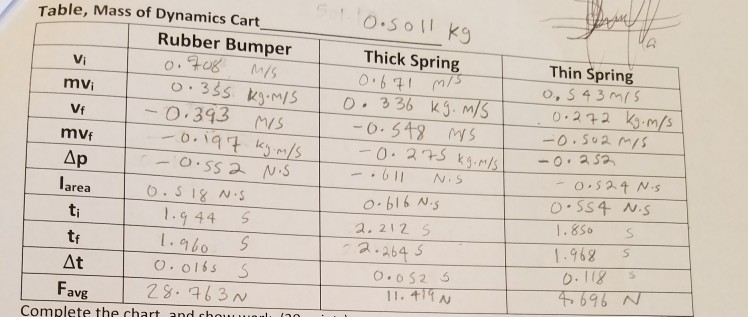 Table, Mass of Dynamics Cart 0.5011 kg
Rubber Bumper Thick Spring Thin Spring
vi 0.708 m/s 0.671 m/s 0.543 m/s
mvi 0.355 kg.m/s 0.336 kg.m/s 0.272 kg.m/s
vf -0.393 m/s -0.548 m/s -0.502 m/s
mvf -0.197 kg.m/s -0.275 kg.m/s -0.252
Δp -0.552 N.S -.611 N.S -0.524 N.S
Iarea 0.518 N.S 0.616 N.S 0.554 N.S
ti 1.944 S 2.212 S 1.850 S
tf 1.960 S 2.264 S 1.968 S
Δt 0.0165 S 0.052 S 0.118 S
Favg 28.763 N 11.419 N 4.696 N
Complete the chart and show